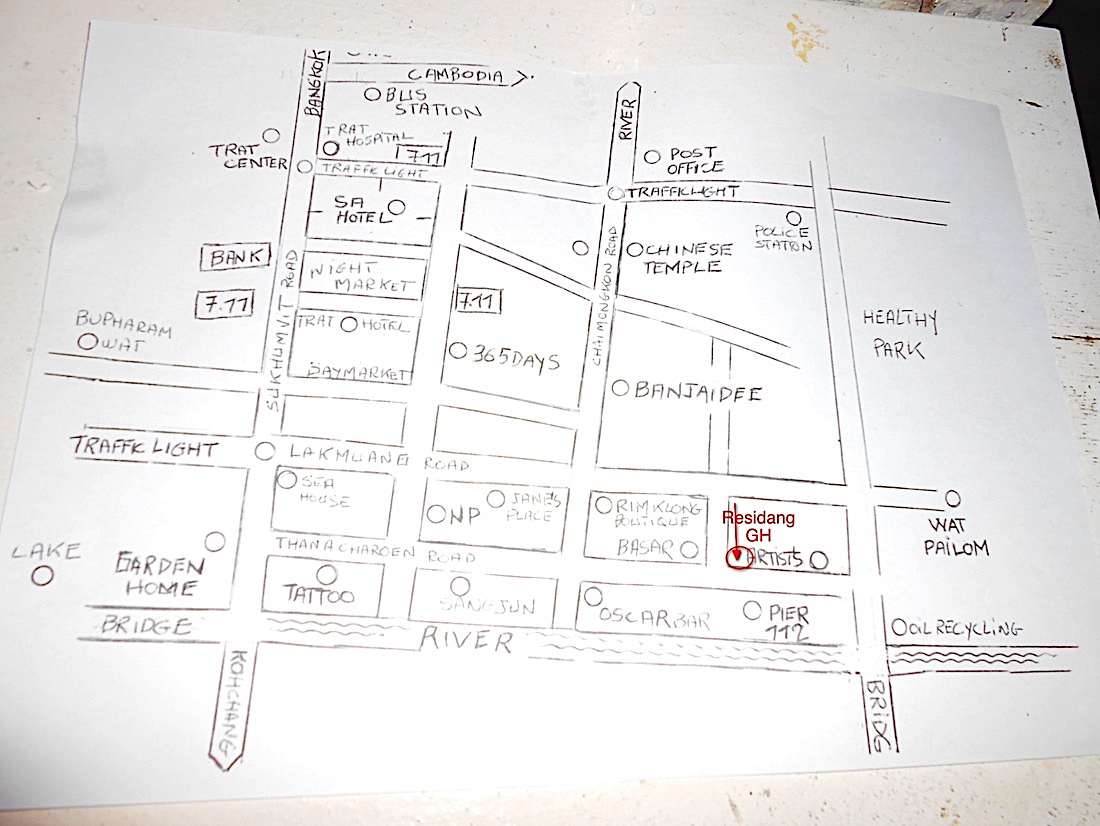 BANGKOK
CAMBODIA
BUS
STATION
RIVER
TRAT
HOSPITAL
7.11
TRAT
CENTER
TRAFFIC LIGHT
POST
OFFICE
TRAFFIC LIGHT
SA
HOTEL
POLICE
STATION
BANK
NIGHT
MARKET
CHINESE
TEMPLE
CHAIMONGKON ROAD
SUKHUMVIT ROAD
7.11
7.11
TRAT HOTEL
HEALTHY
PARK
BUPHARAM
WAT
365DAYS
DAYMARKET
BANJAIDEE
TRAFFIC LIGHT
LAKMUANG ROAD
SEA
HOUSE
NP
JANE'S
PLACE
RIMKLONG
BOUTIQUE
BASAR
Residang
GH
ARTISTS
WAT
PAILOM
LAKE
GARDEN
HOME
THANACHAROEN ROAD
TATTOO
SANGJUN
OSCARBAR
PIER
112
OIL RECYCLING
BRIDGE
RIVER
KOHCHANG
BRIDG